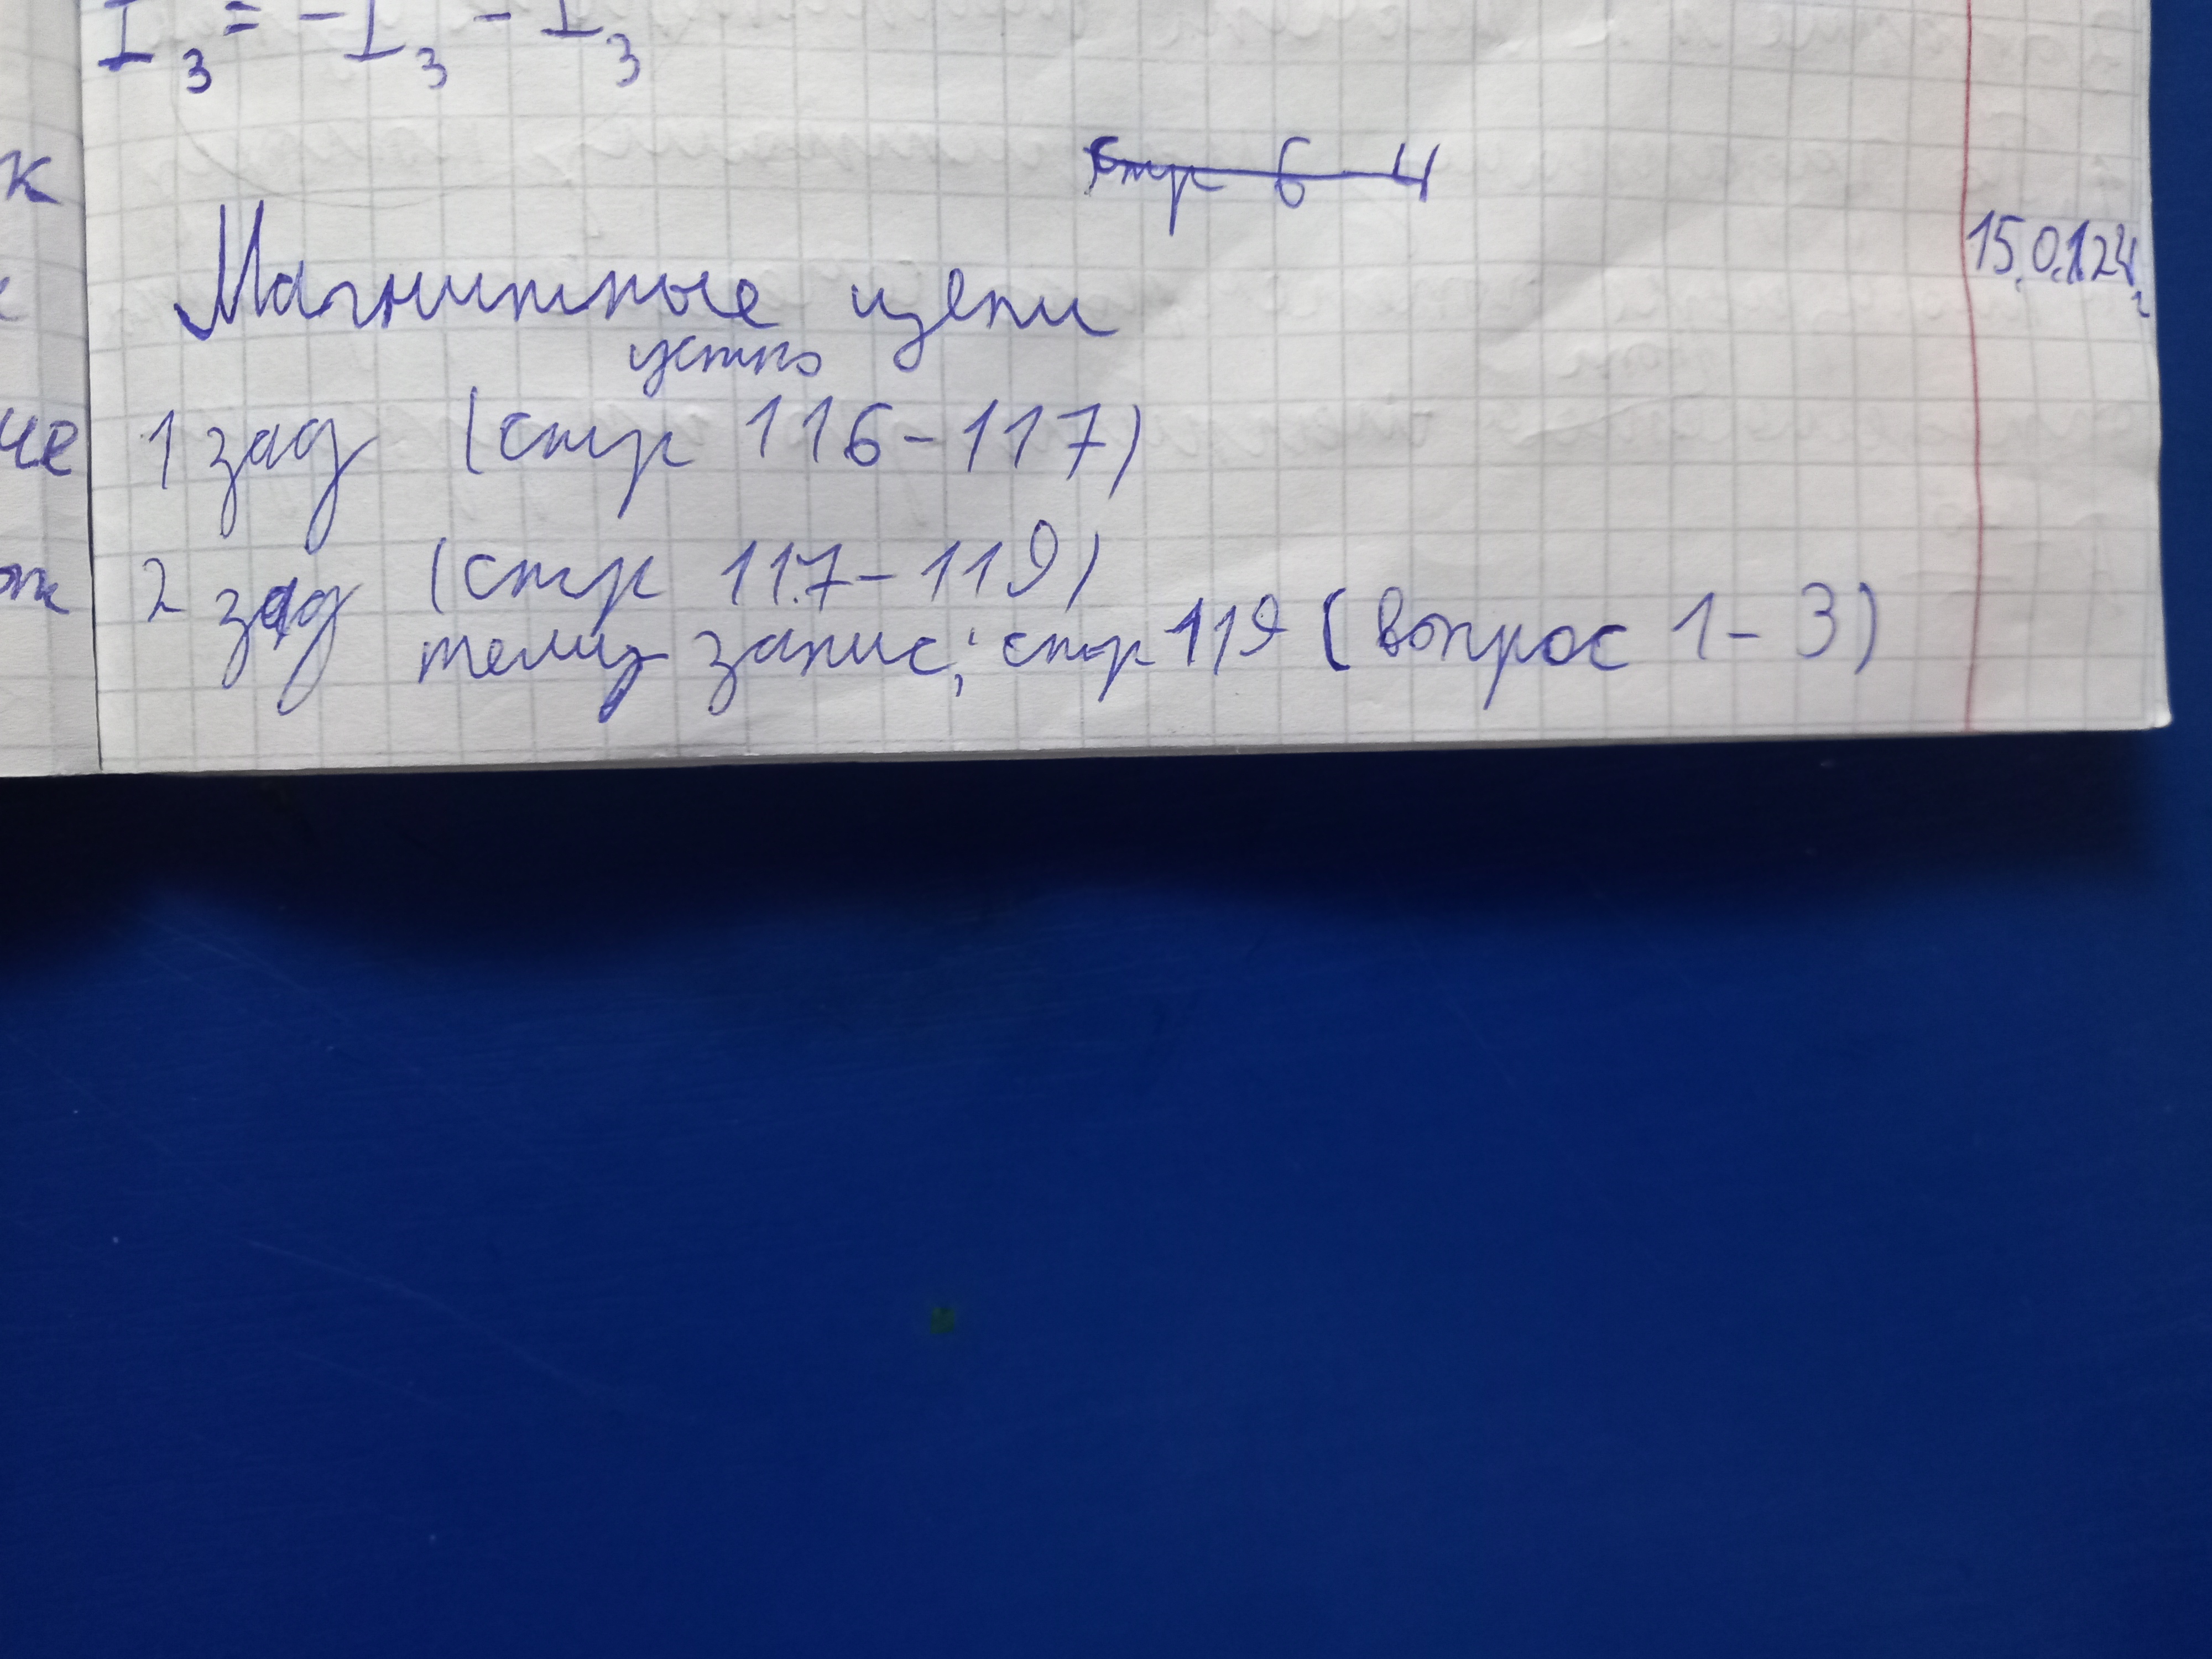 I₃ = -I₃ - I₃
к
стр 6 4
15.01.24г
Магнитные цепи
устно
че 1 зад (стр 116-117)
2 зад (стр 117-119)
тему запис; стр 119 (вопрос 1-3)